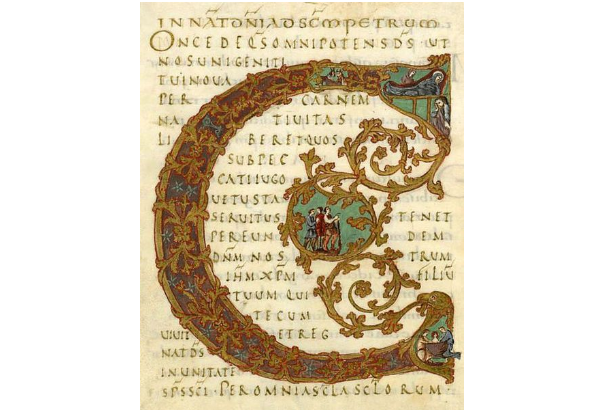 IN NAT DNI AD SCM PETRUM
ONCEDE QS OMNIPOTENS DS UT
NOS UNIGENITI
TUI NOUA
PER CARNEM
NA TIUITAS
LI BERET QUOS
SUB PEC
CATI IUGO
UETUSTA
SERUITUS TENET
PER EUN DEM
DNM NOS TRUM
IHM XPM FILIU
TUUM QUI
TECUM
UIUIT ET REG
NAT DS
IN UNITATE
SPS SCI PER OMNIA SCLA SCLORUM